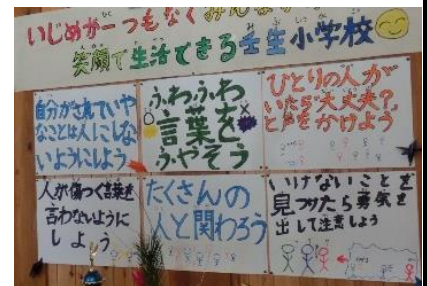 いじめが一つもなくみんなが
笑顔で生活できる壬生小学校
自分がされていや
なことは人にしな
いようにしよう
ふわふわ
言葉を
ふやそう
ひとりの人が
いたら大丈夫?
と声をかけよう
人が傷つく言葉を
言わないように
しよう
たくさんの
人と関わろう
いけないことを
見つけたら勇気を
出して注意しよう